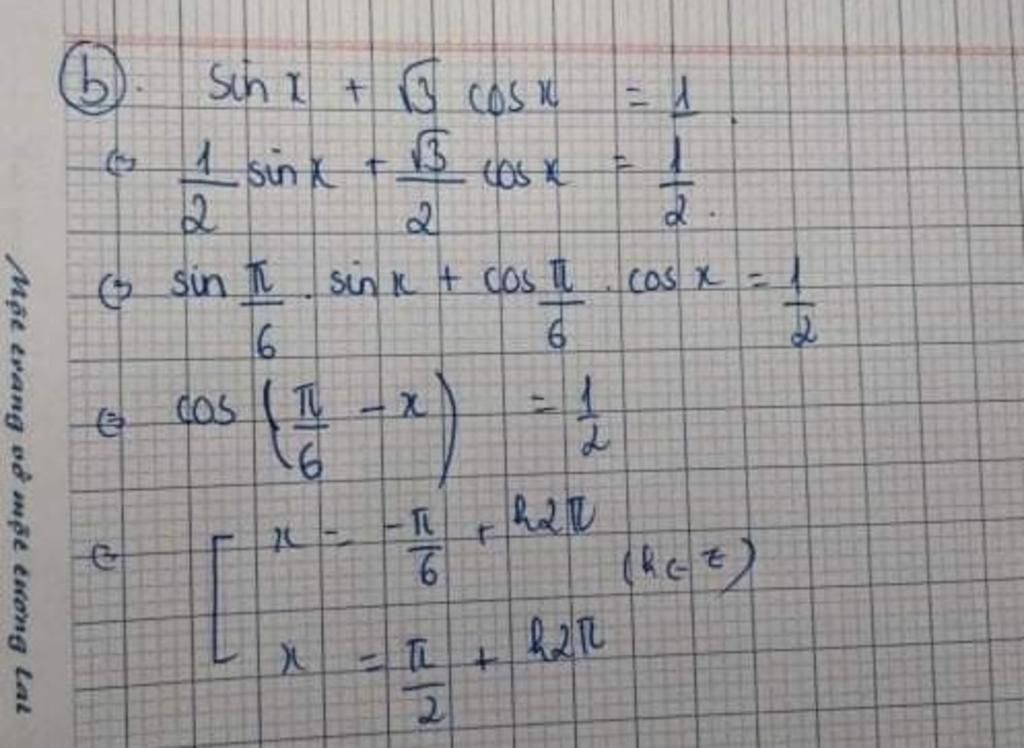 b. sin x + √3 cos x = 1.
⇔ 1/2 sin x + √3/2 cos x = 1/2.
⇔ sin π/6 . sin x + cos π/6 . cos x = 1/2
⇔ cos (π/6 - x) = 1/2
⇔ [ x = -π/6 + k2π
(k ∈ Z)
x = π/2 + k2π
Một trang vở một tương lai